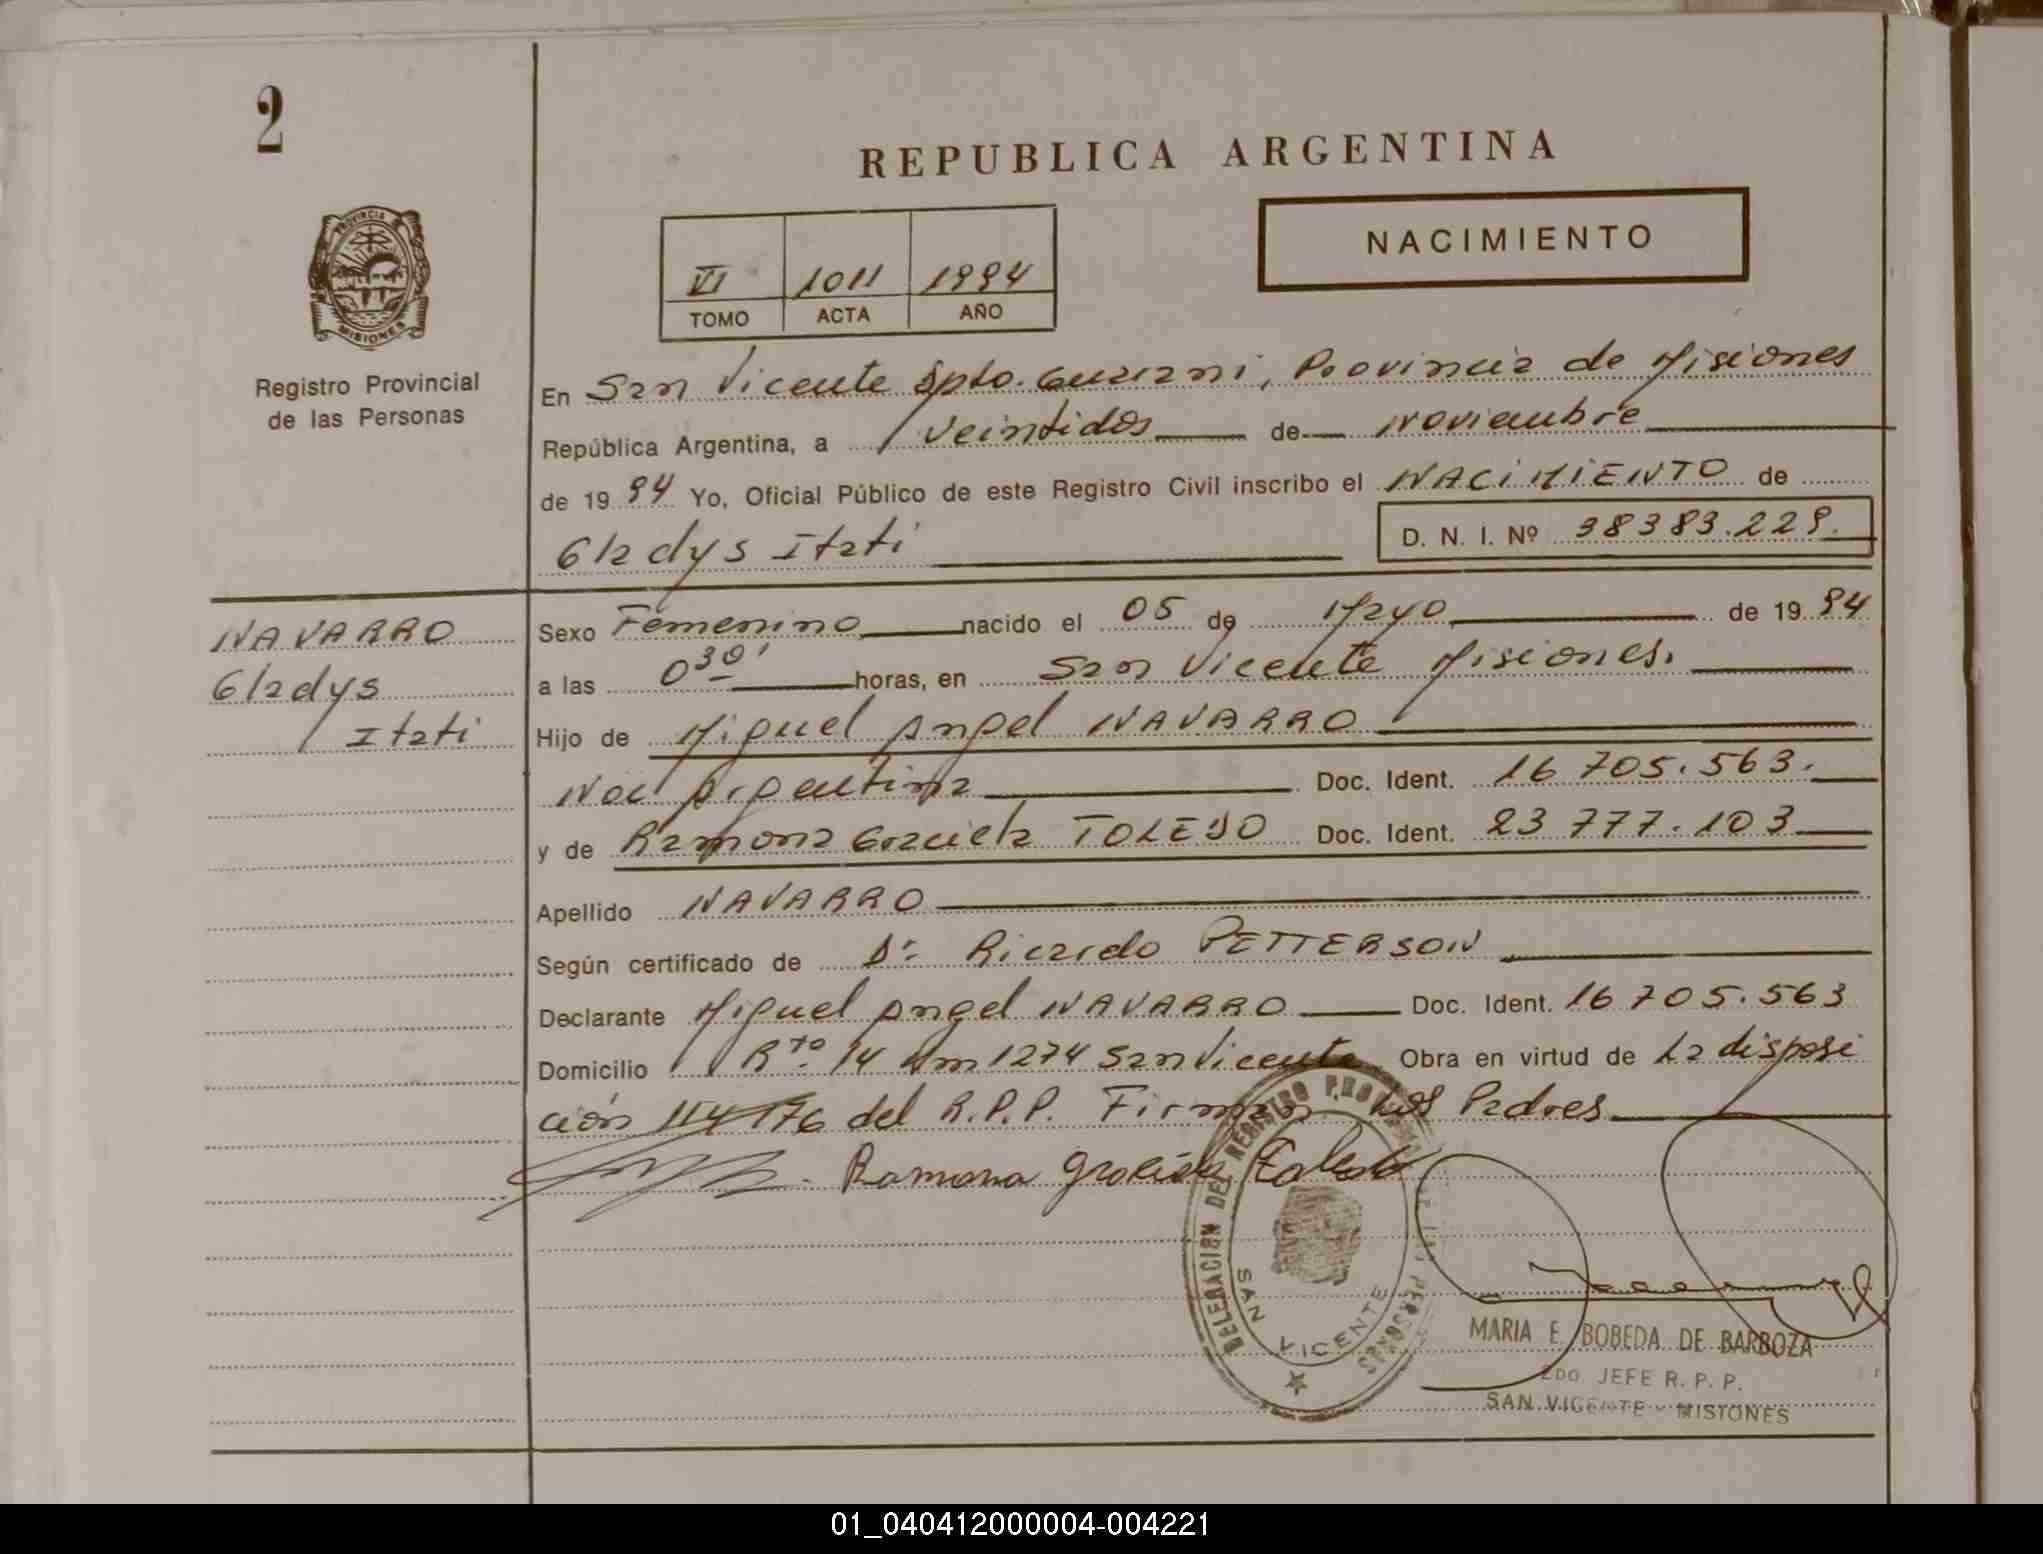 2
REPUBLICA ARGENTINA
NACIMIENTO
VI 1011 1994
TOMO ACTA AÑO
PROVINCIA
MISIONES
Registro Provincial
de las Personas
En San Vicente Dpto. Guarani, Provincia de Misiones
República Argentina, a veintidos de noviembre
de 19 94 Yo, Oficial Público de este Registro Civil inscribo el NACIMIENTO de
Gladys Itati D. N. I. Nº 38383.229.
NAVARRO
Gladys
Itati
Sexo Femenino nacido el 05 de Mayo de 19 94
a las 0 30' horas, en San Vicente Misiones.
Hijo de Miguel Angel NAVARRO
Nac Argentina Doc. Ident. 16 705.563.
y de Ramona Graciela TOLEDO Doc. Ident. 23 777.103
Apellido NAVARRO
Según certificado de Dr. Ricardo PETTERSON
Declarante Miguel Angel NAVARRO Doc. Ident. 16 705.563
Domicilio 14 Km 1274 San Vicente Obra en virtud de La disposi
ción del R.P.P. Firman Los Padres
Ramona Graciela Toledo
DELEGACION DEL REGISTRO PROVINCIAL DE LAS PERSONAS
SAN VICENTE
MARIA E. BOBEDA DE BARBOZA
2DO. JEFE R. P. P.
SAN VICENTE - MISIONES
01_040412000004-004221